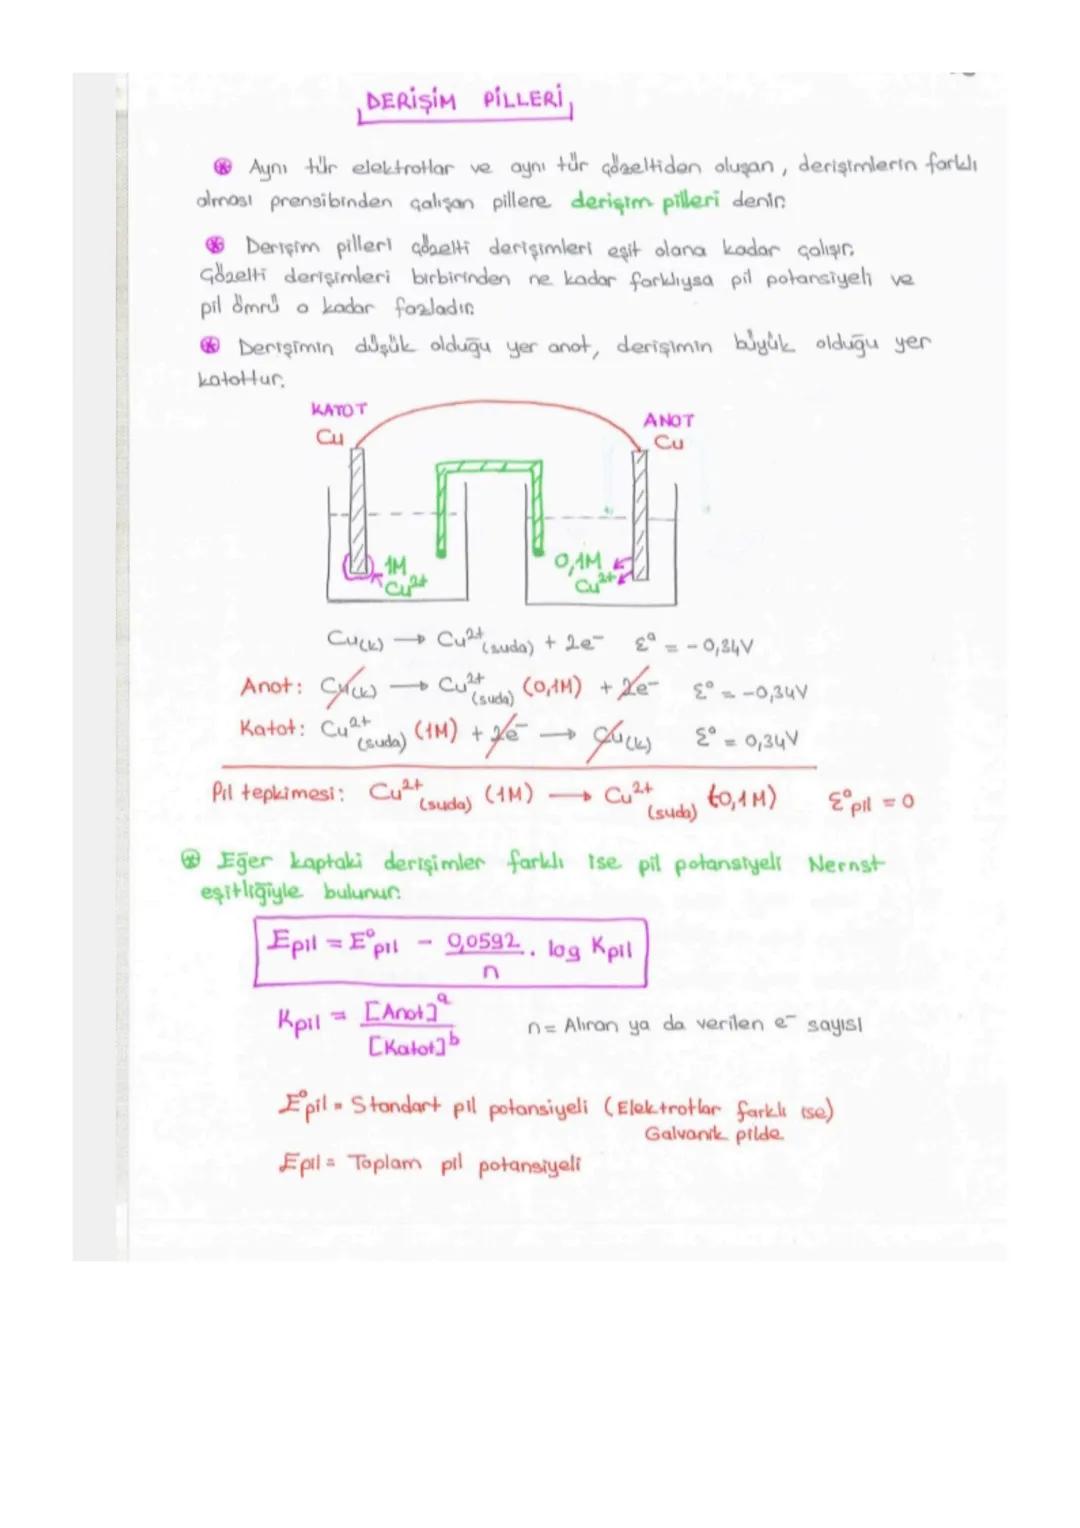 DERİŞİM PİLLERİ
Aynı tür elektrotlar ve aynı tür çözeltiden oluşan, derişimlerin farklı
olması prensibinden çalışan pillere derişim pilleri denir.
Derişim pilleri çözelti derişimleri eşit olana kadar çalışır.
Çözelti derişimleri birbirinden ne kadar farklıysa pil potansiyeli ve
pil ömrü o kadar fazladır.
Derişimin düşük olduğu yer anot, derişimin büyük olduğu yer
katottur.
KATOT
Cu
ANOT
Cu
1M
Cu²⁺
0,1M
Cu²⁺
Cu(k) → Cu²⁺(suda) + 2e⁻ Ɛ° = -0,34V
Anot: Cu(k) → Cu²⁺(suda) (0,1M) + 2e⁻ Ɛ° = -0,34V
Katot: Cu²⁺(suda) (1M) + 2e⁻ → Cu(k) Ɛ° = 0,34V
Pil tepkimesi: Cu²⁺(suda) (1M) → Cu²⁺(suda) (0,1M) Ɛ°pil = 0
Eğer kaptaki derişimler farklı ise pil potansiyeli Nernst
eşitliğiyle bulunur.
Epil = E°pil - 0,0592/n . log Kpil
Kpil = [Anot]ᵃ/[Katot]ᵇ n = Alınan ya da verilen e⁻ sayısı
E°pil = Standart pil potansiyeli (Elektrotlar farklı ise)
Galvanik pilde
Epil = Toplam pil potansiyeli